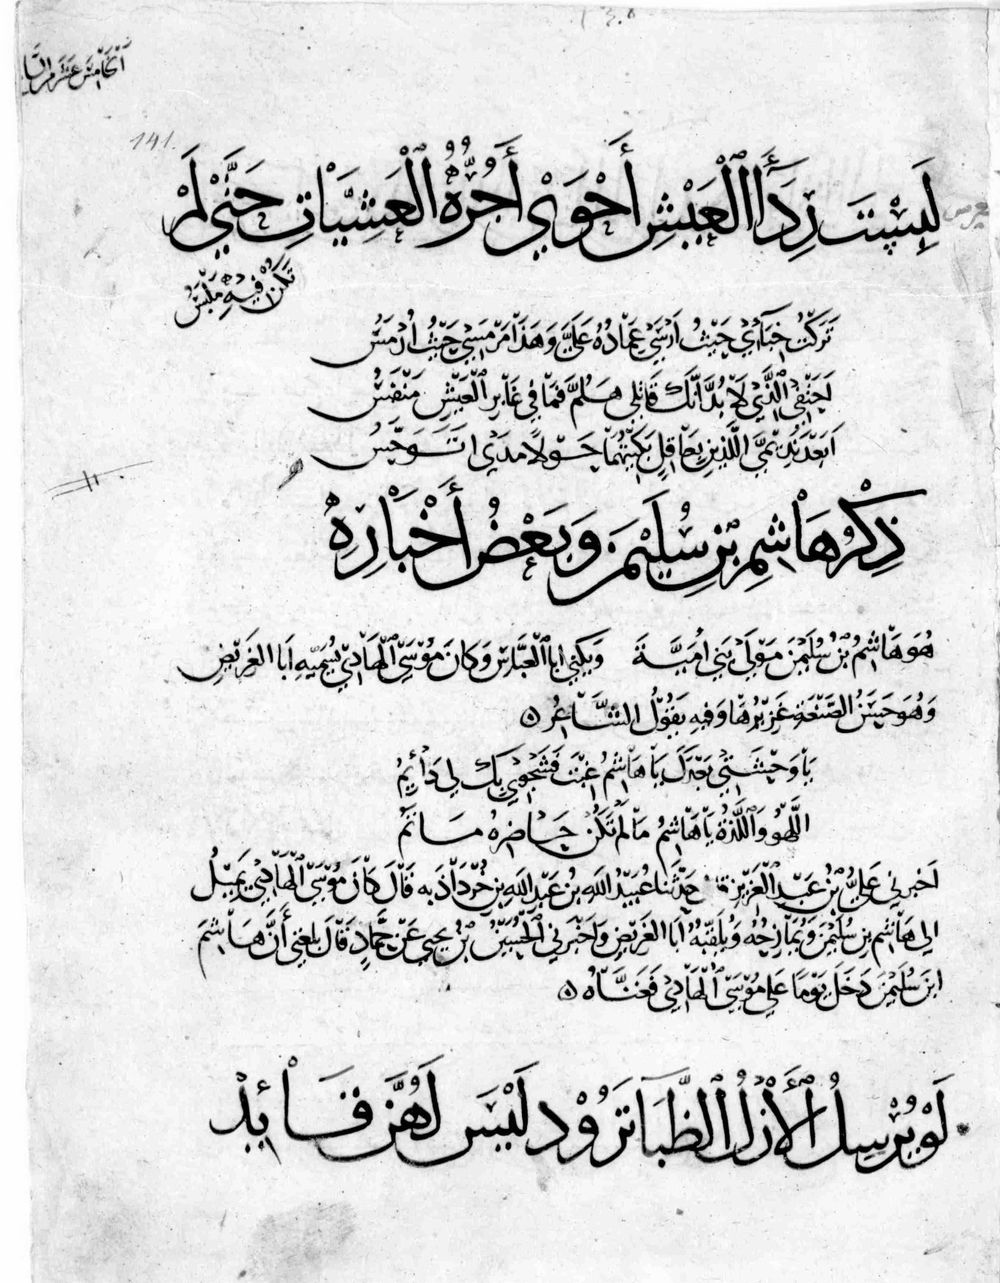 141.
لَبِسْتَ رِدَاءَ الْعَيْشِ أَحْوَى أَجُرُّهُ الْعَشِيَّاتِ حَتَّى لَمْ
تَكُنْ فِيهِ مَلْبَسُ
تَرَكْتُ خِبَائِي حَيْثُ أَرْسَى عِمَادُهُ عَلَيَّ وَهَذَا مَرْمَسِي حَيْثُ أُرْمَسُ
أَحَتْفِي الَّذِي لَا بُدَّ أَنَّكَ قَاتِلِي هَلُمَّ فَمَا فِي غَابِرِ الْعَيْشِ مَنْفَسُ
أَبَعْدَ نَدِيمَيَّ اللَّذَيْنِ بِعَاقِلٍ بَكَيْتُهُمَا حَوْلًا مَدًى أَتَوَجَّسُ
ذِكْرُ هَاشِمِ بْنِ سُلَيْمَنَ وَبَعْضُ أَخْبَارِهِ
هُوَ هَاشِمُ بْنُ سُلَيْمَنَ مَوْلَى بَنِي أُمَيَّةَ وَيُكْنَى أَبَا الْعَبَّاسِ وَكَانَ مُوسَى الْهَادِي يُسَمِّيهِ أَبَا الْغَرِيضِ
وَهُوَ حَسَنُ الصَّنْعَةِ غَزِيرُهَا وَفِيهِ يَقُولُ الشَّاعِرُ ه
يَا وَحْشَتِي بَعْدَكَ يَا هَاشِمُ غِبْتَ فَشَجْوِي بِكَ لِي دَائِمُ
اللَّهْوُ وَاللَّذَّةُ يَا هَاشِمُ مَا لَمْ تَكُنْ حَاضِرَهُ مَاتَمُ
أَخْبَرَنِي عَلِيُّ بْنُ عَبْدِ الْعَزِيزِ قَالَ حَدَّثَنَا عُبَيْدُ اللَّهِ بْنُ عَبْدِ اللَّهِ بْنِ خُرْدَاذبَه قَالَ كَانَ مُوسَى الْهَادِي يَمِيلُ
إِلَى هَاشِمِ بْنِ سُلَيْمَنَ وَيُمَازِحُهُ وَيُلَقِّبُهُ أَبَا الْغَرِيضِ وَأَخْبَرَنِي الْحُسَيْنُ بْنُ يَحْيَى عَنْ حَمَّادٍ قَالَ بَلَغَنِي أَنَّ هَاشِمَ
ابْنَ سُلَيْمَنَ دَخَلَ يَوْمًا عَلَى مُوسَى الْهَادِي فَغَنَّاهُ ه
لَوْ يُرْسِلُ الْأَزْلُ الظِّبَا تَرُودُ لَيْسَ لَهُنَّ قَائِدْ